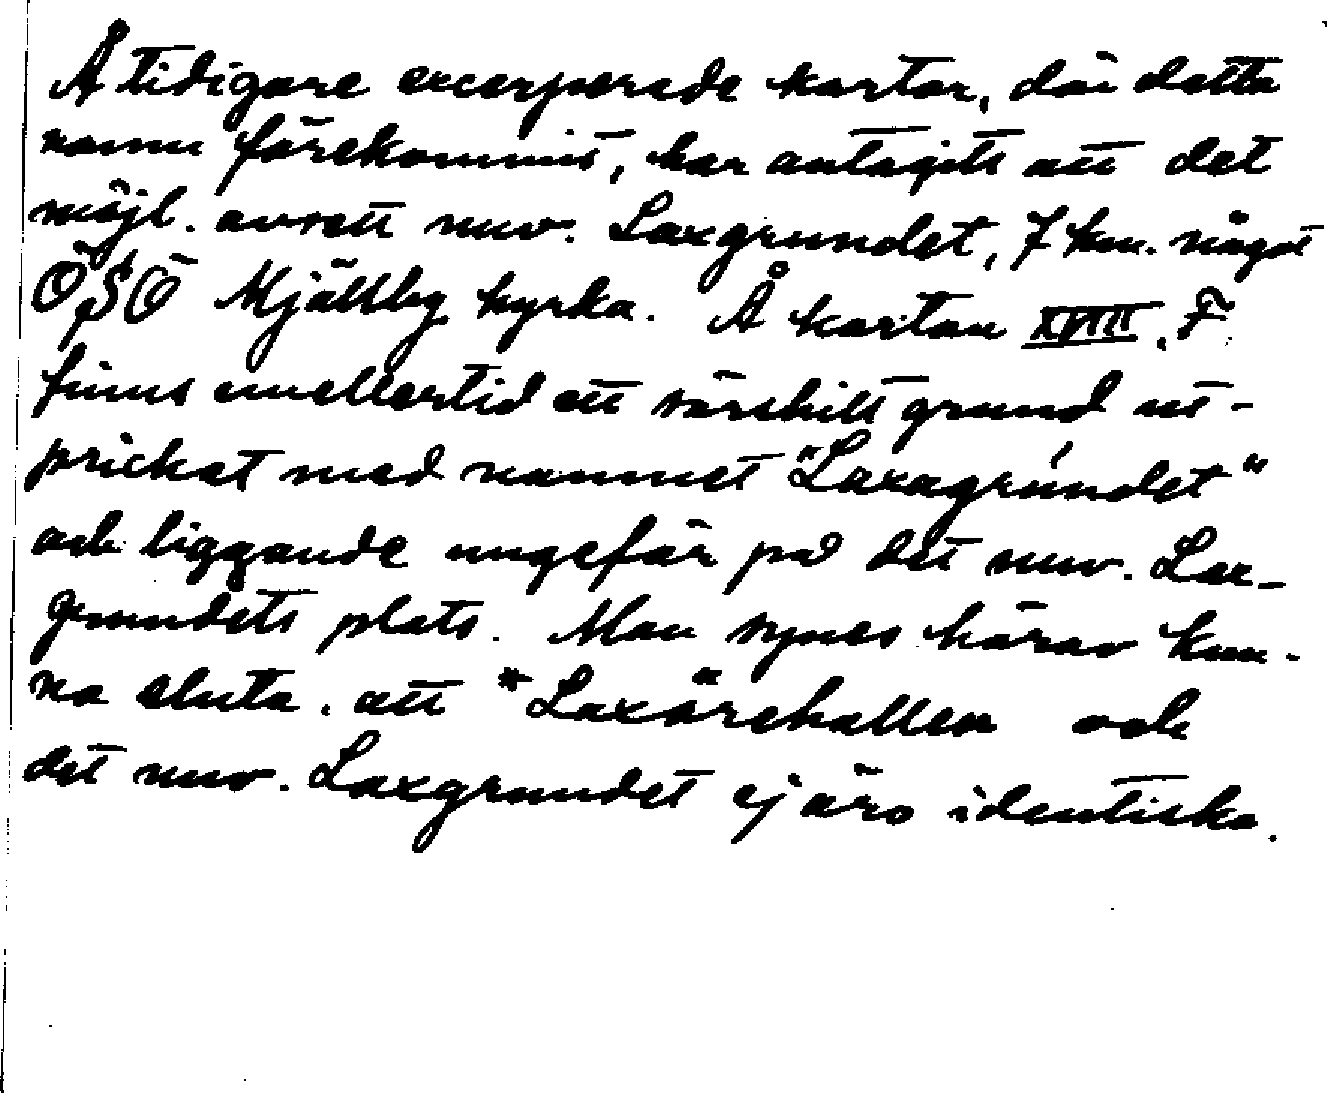 Å tidigare excerperade kartor, där detta
namn förekommit, har antagits att det
möjl. avsett nuv. Laxgrundet, 7 km. något
ÖSÖ Mjällby kyrka. Å kartan XVIII, F
finns emellertid ett särskilt grund ut-
prickat med namnet "Laxagrundet"
och liggande ungefär på det nuv. Lax-
grundets plats. Man synes härav kun-
na sluta, att *Laxörehallen och
det nuv. Laxgrundet ej äro identiska.